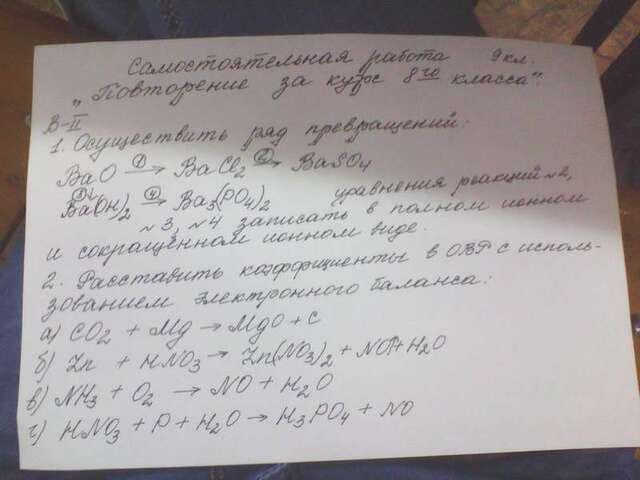 Самостоятельная работа 9 кл.
"Повторение за курс 8го класса".
В-II
1. Осуществить ряд превращений:
BaO →① BaCl2 →② BaSO4
③↓
Ba(OH)2 →④ Ba3(PO4)2 уравнения реакций №2,
№3, №4 записать в полном ионном
и сокращённом ионном виде.
2. Расставить коэффициенты в ОВР с исполь-
зованием электронного баланса:
а) CO2 + Mg → MgO + C
б) Zn + HNO3 → Zn(NO3)2 + NO↑ + H2O
в) NH3 + O2 → NO + H2O
г) HNO3 + P + H2O → H3PO4 + NO